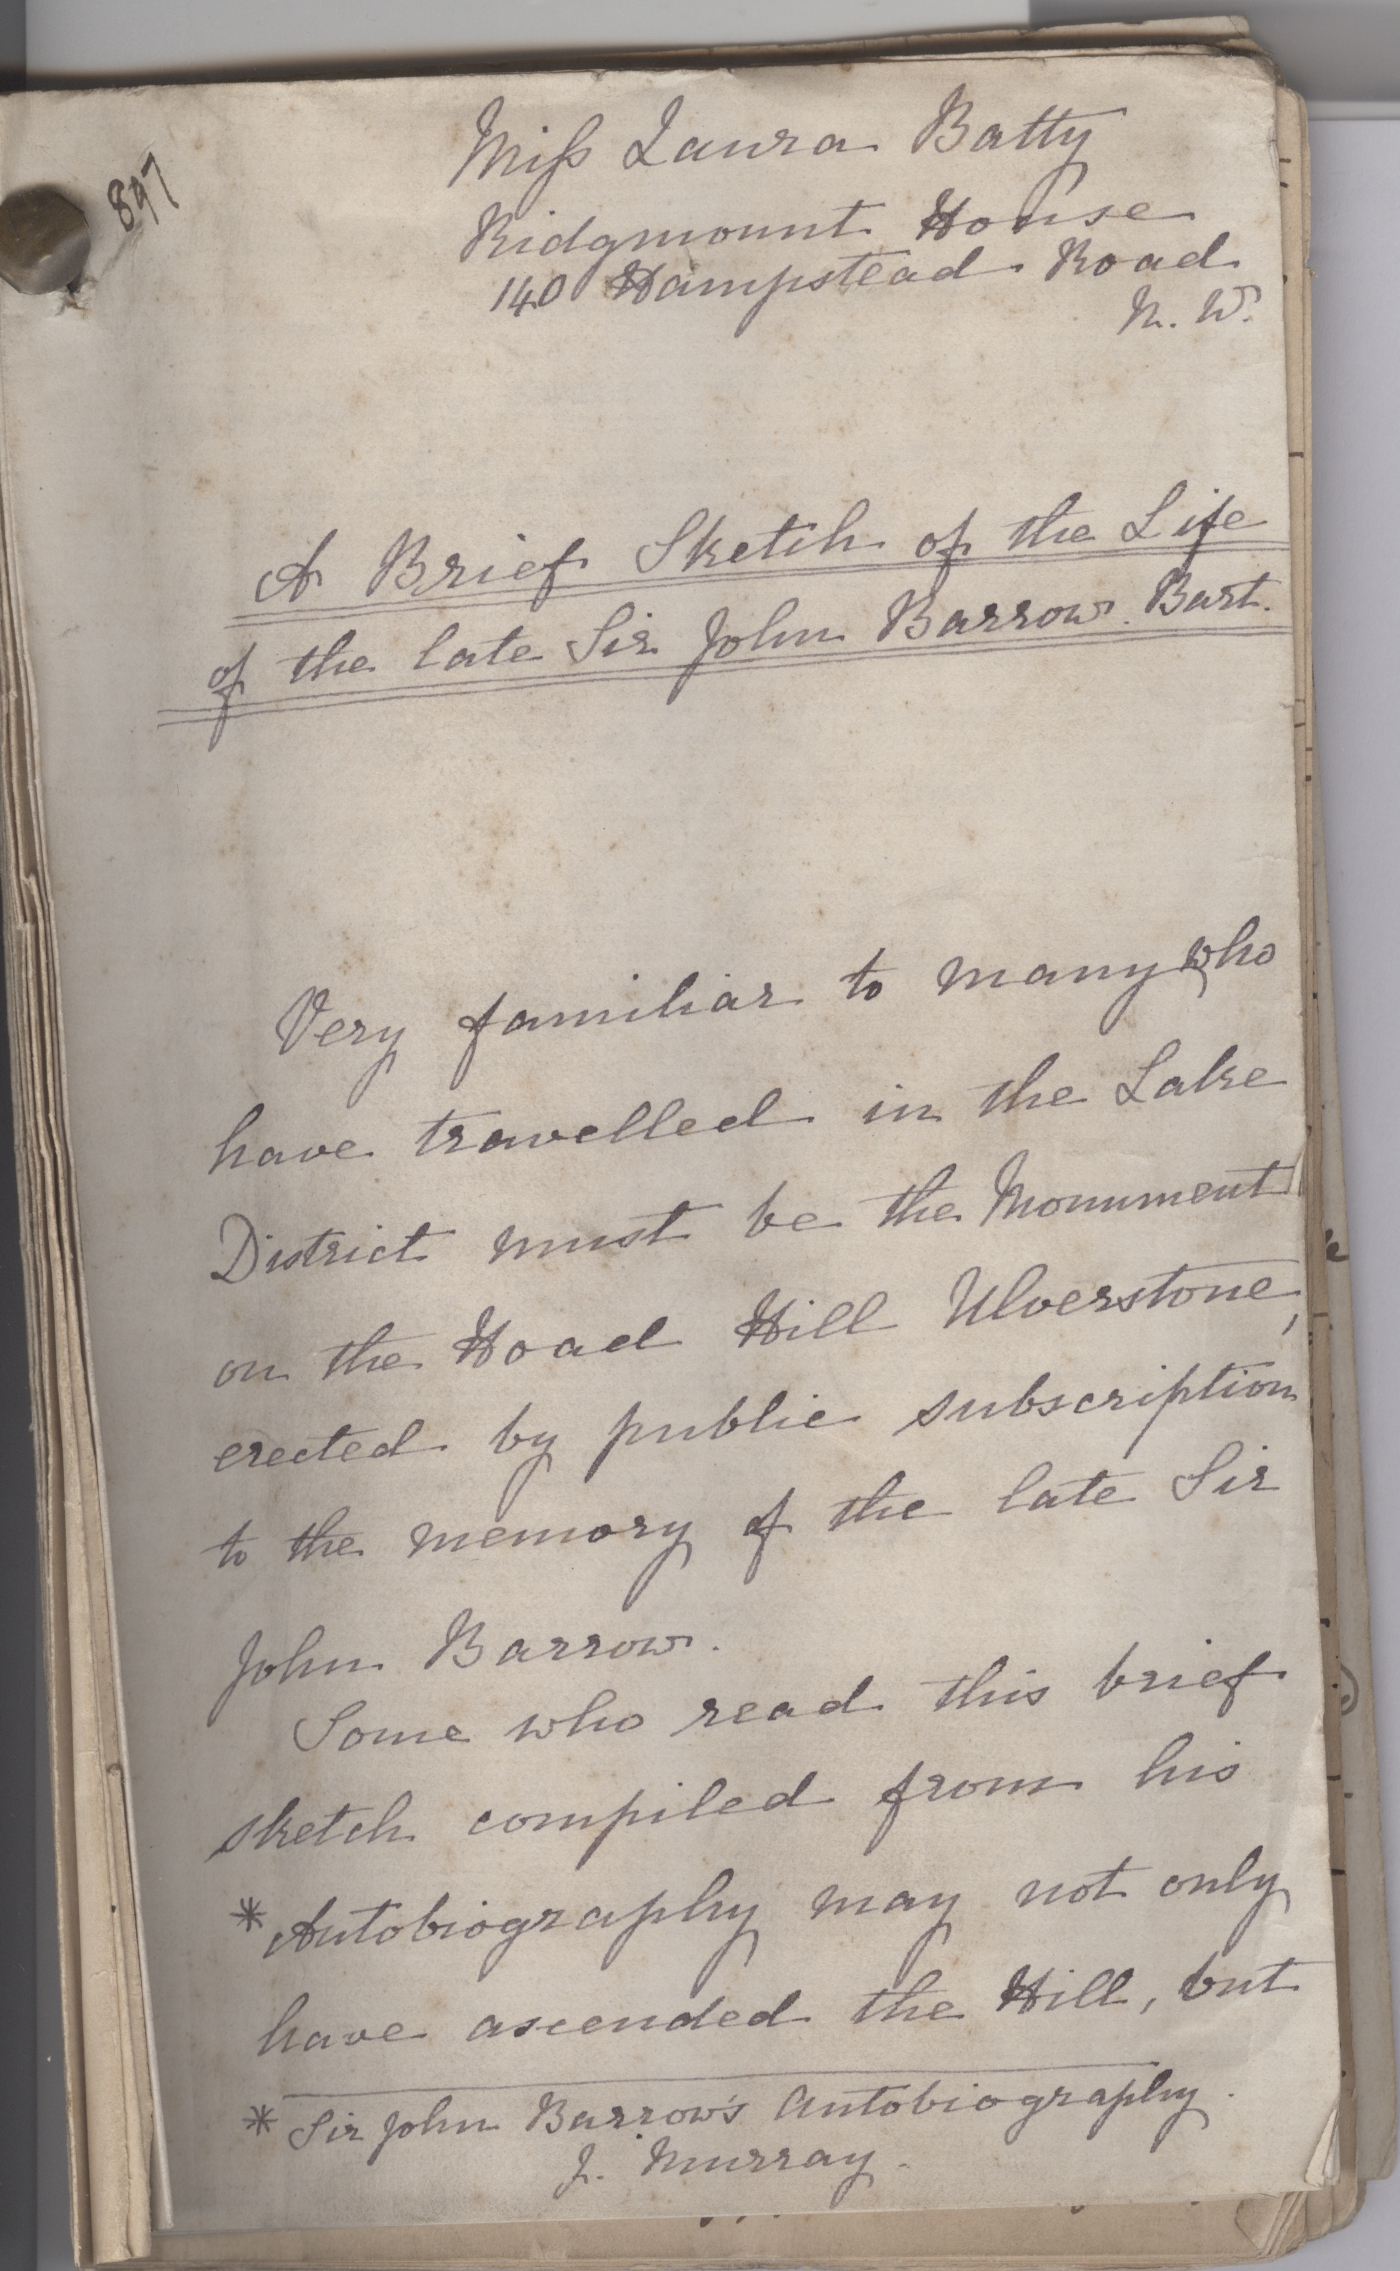 897
Miss Laura Batty
Ridgmount House
140 Hampstead Road
N. W.
A Brief Sketch of the Life
of the late Sir John Barrow. Bart.
Very familiar to many who
have travelled in the Lake
District must be the Monument
on the Hoad Hill Ulverstone,
erected by public subscription
to the memory of the late Sir
John Barrow.
Some who read this brief
sketch compiled from his
*Autobiography may not only
have ascended the Hill, but
* Sir John Barrow's Autobiography.
J. Murray.